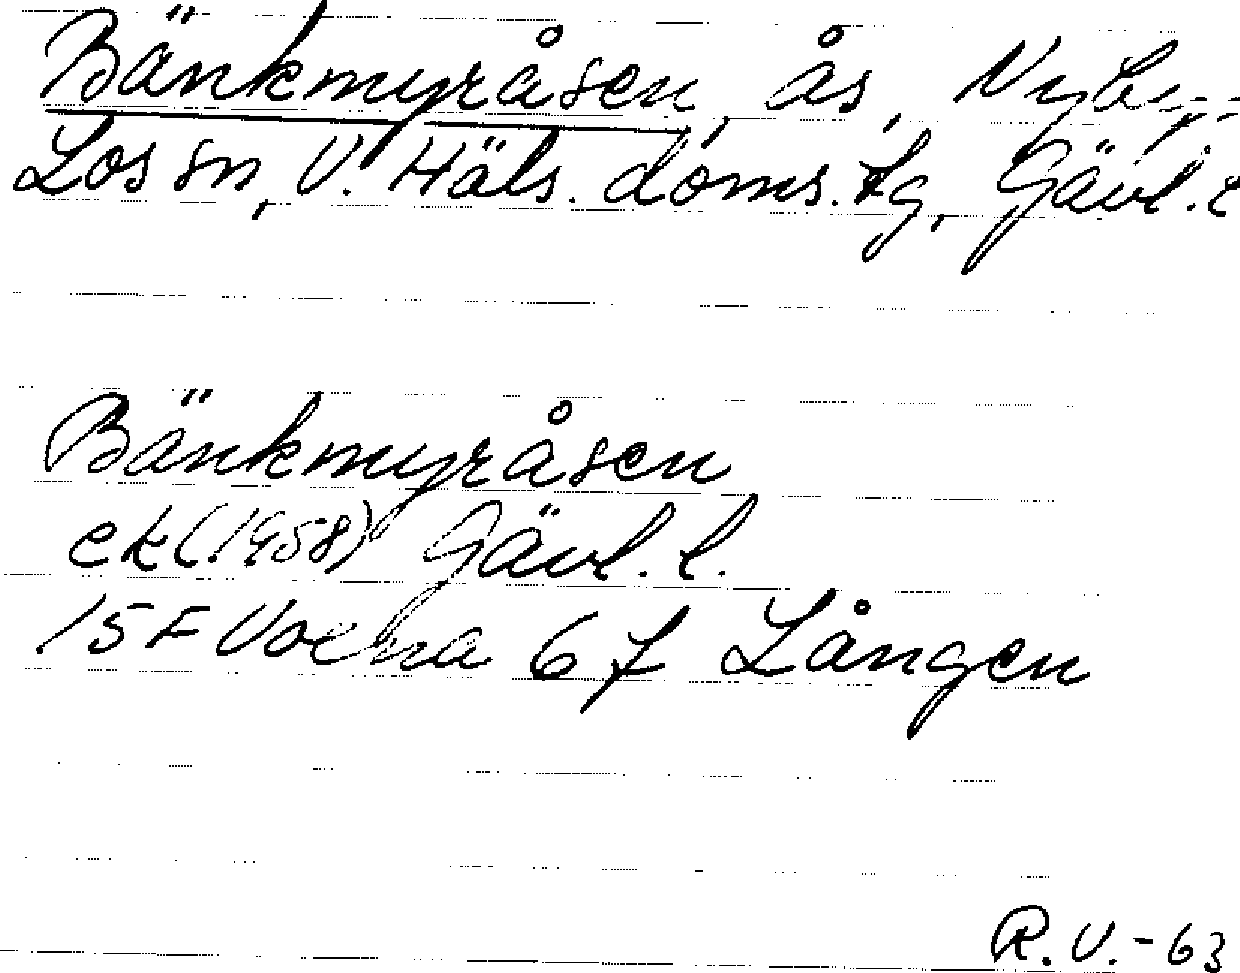 Bänkmyråsen, ås,
Los sn, V. Häls. doms. tg, Gävl. l
Bänkmyråsen
ek (1958) Gävl. l.
15F Voxna 6f Lången
R.V.-63